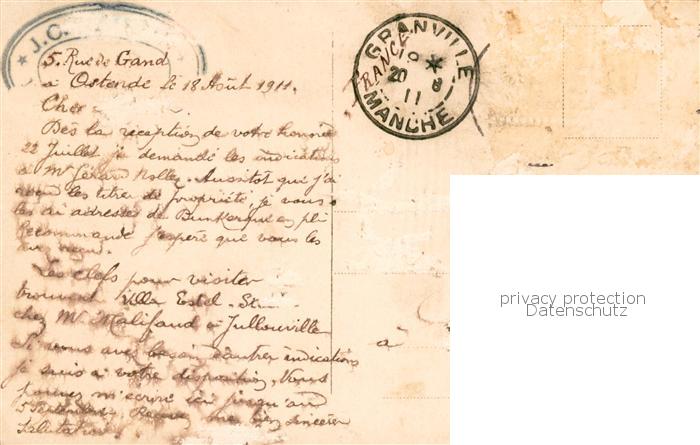 J.C.
5. Rue de Gand
à Ostende le 18 Août 1911.
Cher
Dès la réception de votre honorée
22 Juillet je demandé les indications
à Mr Gérard Nollez. Aussitot qui j'ai
les titres de propriété, je vous
les ai adressés de Dunkerque en pli
Recommandé j'espère que vous les
Les clefs pour visiter
trouvent Villa Estel
chez Mr Malifaud à Jullouville
Si vous avez besoin d'autres indications
je suis à votre disposition. Vous
pouvez m'écrire ici jusqu'au
5 Septembre. Recevez mes bien sincères
Salutations
GRANVILLE
RANCE
20 8
11
MANCHE
à
privacy protection
Datenschutz